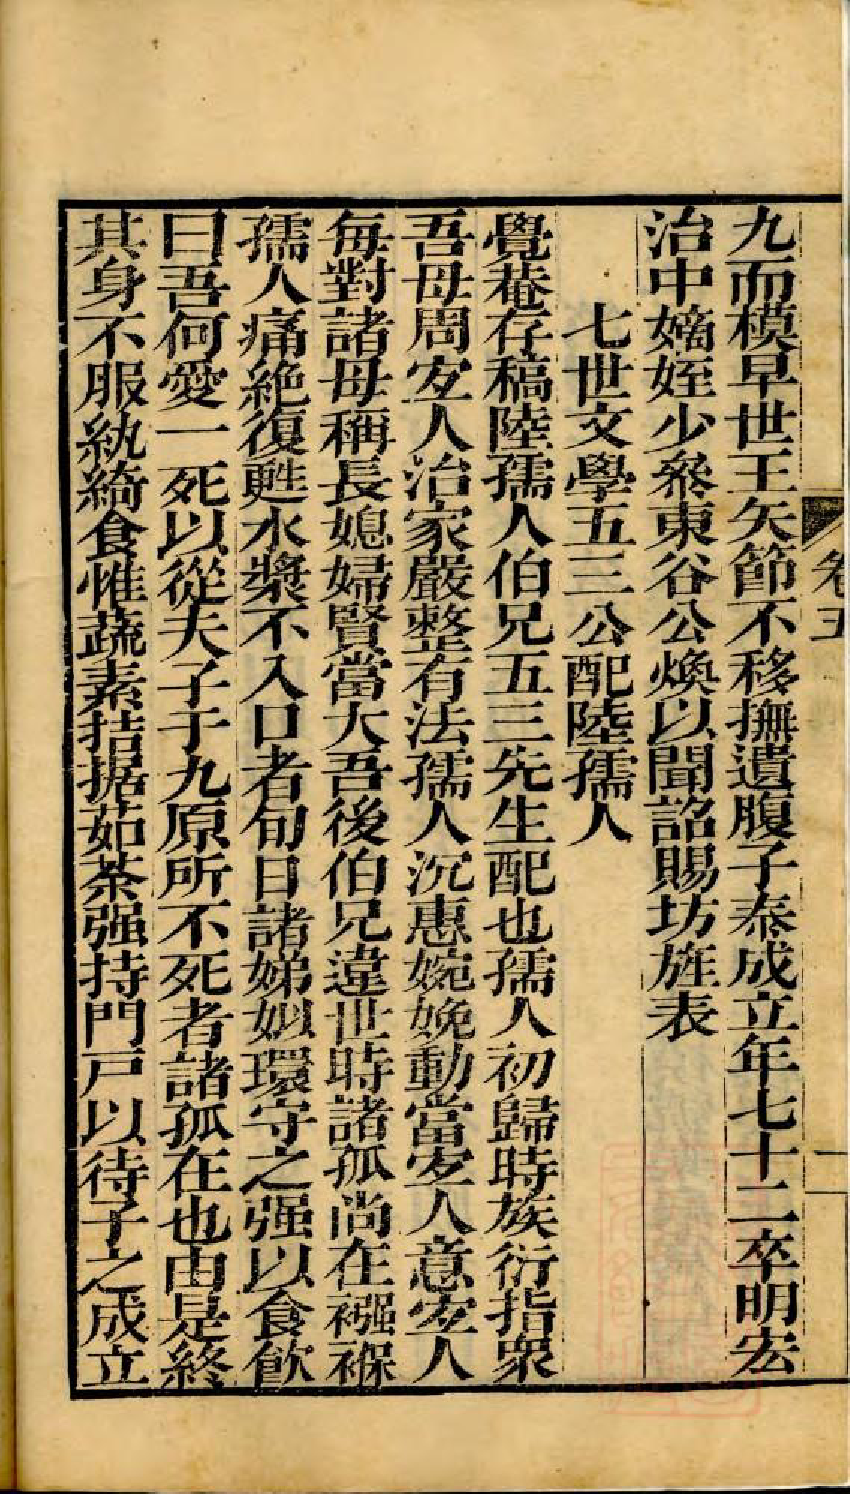 卷五
一
九而模早世王矢節不移撫遺腹子泰成立年七十二卒明宏
治中嫡姪少叅東谷公煥以聞詔賜坊旌表
七世文學五三公配陸孺人
覺菴存稿陸孺人伯兄五三先生配也孺人初歸時族衍指衆
吾母周安人治家嚴整有法孺人沉惠婉娩動當安人意安人
每對諸母稱長媳婦賢當大吾後伯兄違世時諸孤尚在襁褓
孺人痛絶復甦水漿不入口者旬日諸娣姒環守之强以食飲
曰吾何愛一死以從夫子于九原所不死者諸孤在也由是終
其身不服紈綺食惟蔬素拮据茹荼强持門戸以待子之成立